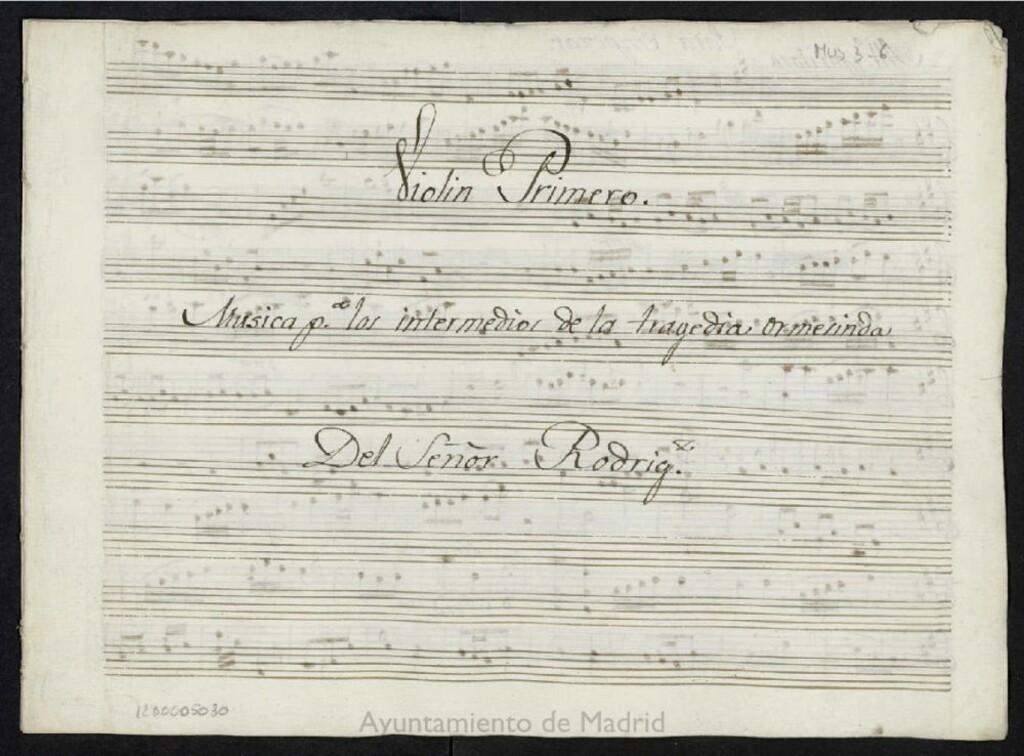 Mus 3-6
Violin Primero.
Musica p.ª los intermedios de la tragedia ormesinda
Del Señor Rodrig.z
1200005030
Ayuntamiento de Madrid